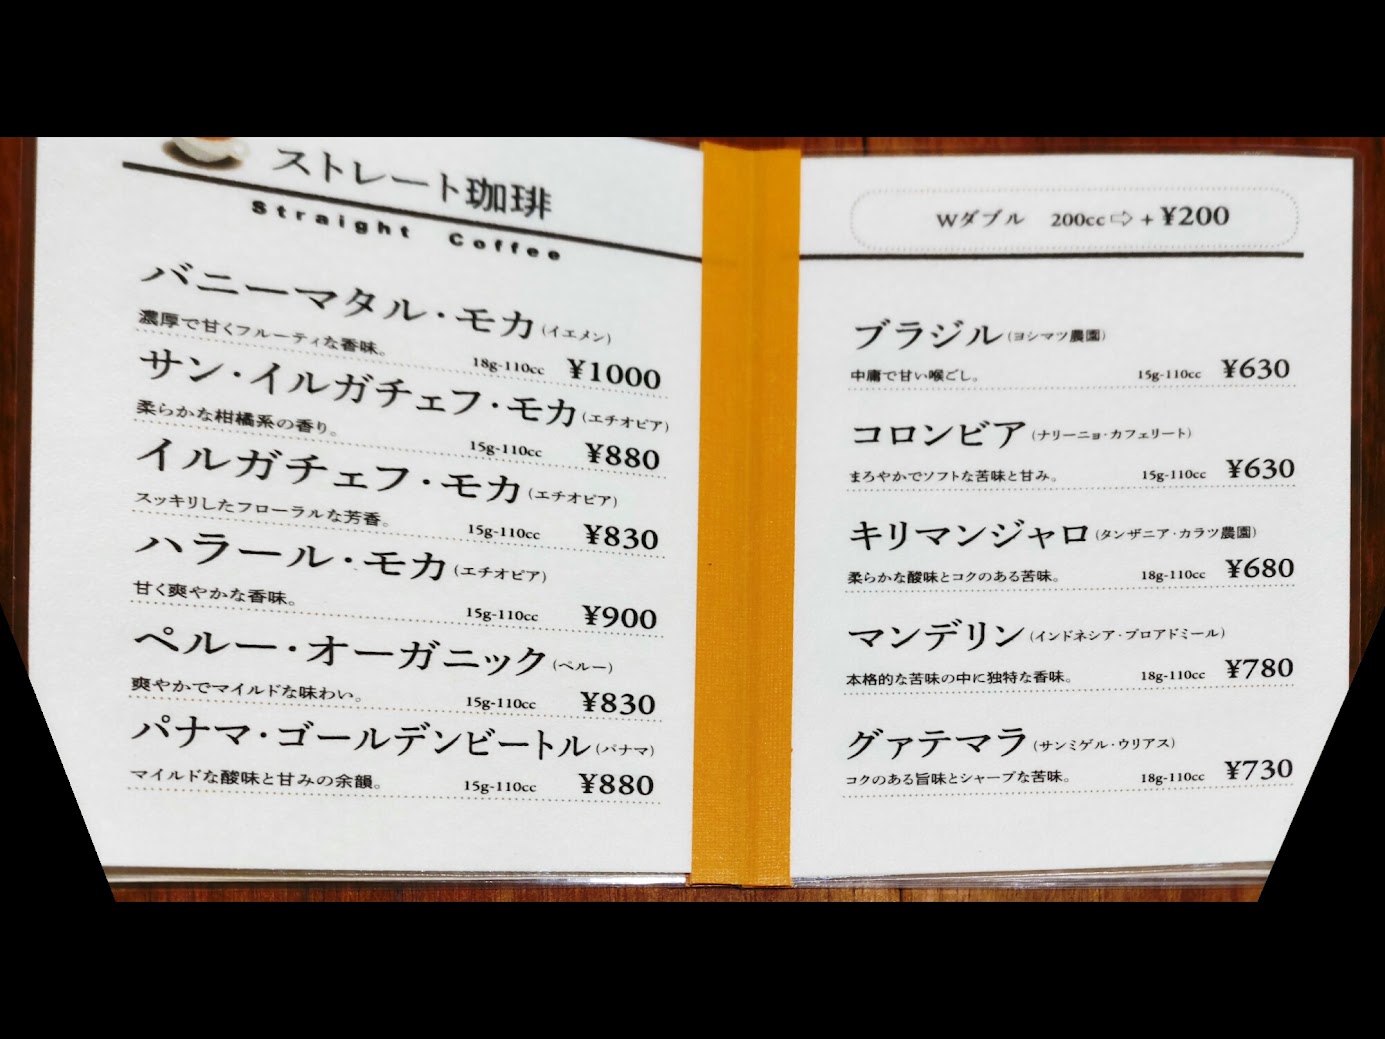 ストレート珈琲
Straight Coffee
バニーマタル・モカ(イエメン)
濃厚で甘くフルーティな香味。 18g-110cc ¥1000
サン・イルガチェフ・モカ(エチオピア)
柔らかな柑橘系の香り。 15g-110cc ¥880
イルガチェフ・モカ(エチオピア)
スッキリしたフローラルな芳香。 15g-110cc ¥830
ハラール・モカ(エチオピア)
甘く爽やかな香味。 15g-110cc ¥900
ペルー・オーガニック(ペルー)
爽やかでマイルドな味わい。 15g-110cc ¥830
パナマ・ゴールデンビートル(パナマ)
マイルドな酸味と甘みの余韻。 15g-110cc ¥880
Wダブル 200cc⇨+¥200
ブラジル(ヨシマツ農園)
中庸で甘い喉ごし。 15g-110cc ¥630
コロンビア(ナリーニョ・カフェリート)
まろやかでソフトな苦味と甘み。 15g-110cc ¥630
キリマンジャロ(タンザニア・カラツ農園)
柔らかな酸味とコクのある苦味。 18g-110cc ¥680
マンデリン(インドネシア・ブロアドミール)
本格的な苦味の中に独特な香味。 18g-110cc ¥780
グァテマラ(サンミゲル・ウリアス)
コクのある旨味とシャープな苦味。 18g-110cc ¥730